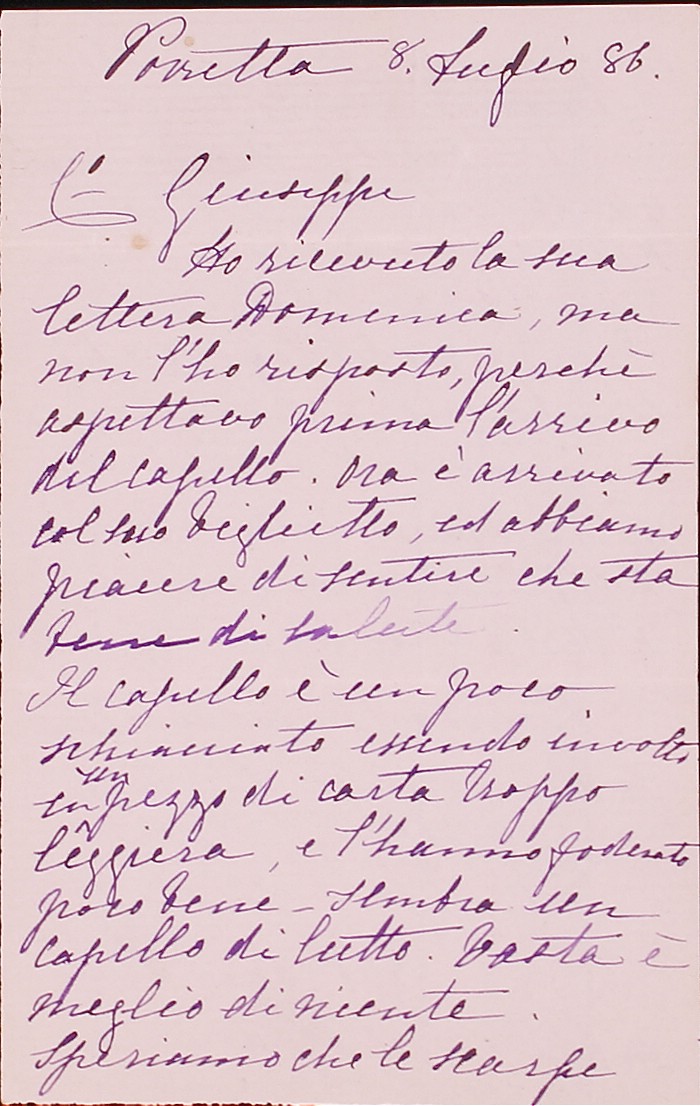 Porretta 8. Luglio 86.
Co Giuseppe
Ho ricevuto la sua
lettera Domenica, ma
non l'ho risposto, perchè
aspettavo prima l'arrivo
del capello. Ora è arrivato
col suo biglietto, ed abbiamo
piacere di sentire che sta
bene di salute.
Il capello è un poco
schiacciato essendo involto
in un pezzo di carta troppo
leggiera, e l'hanno foderato
poco bene – sembra un
capello di lutto. Basta è
meglio di niente.
Speriamo che le scarpe